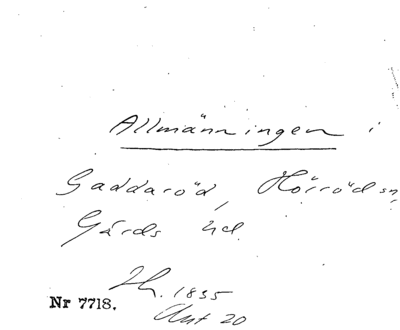 Allmänningen i
Gaddaröd, Hörröd sn,
Gärds hd.
Lh. 1835
Akt 20
Nr 7718.